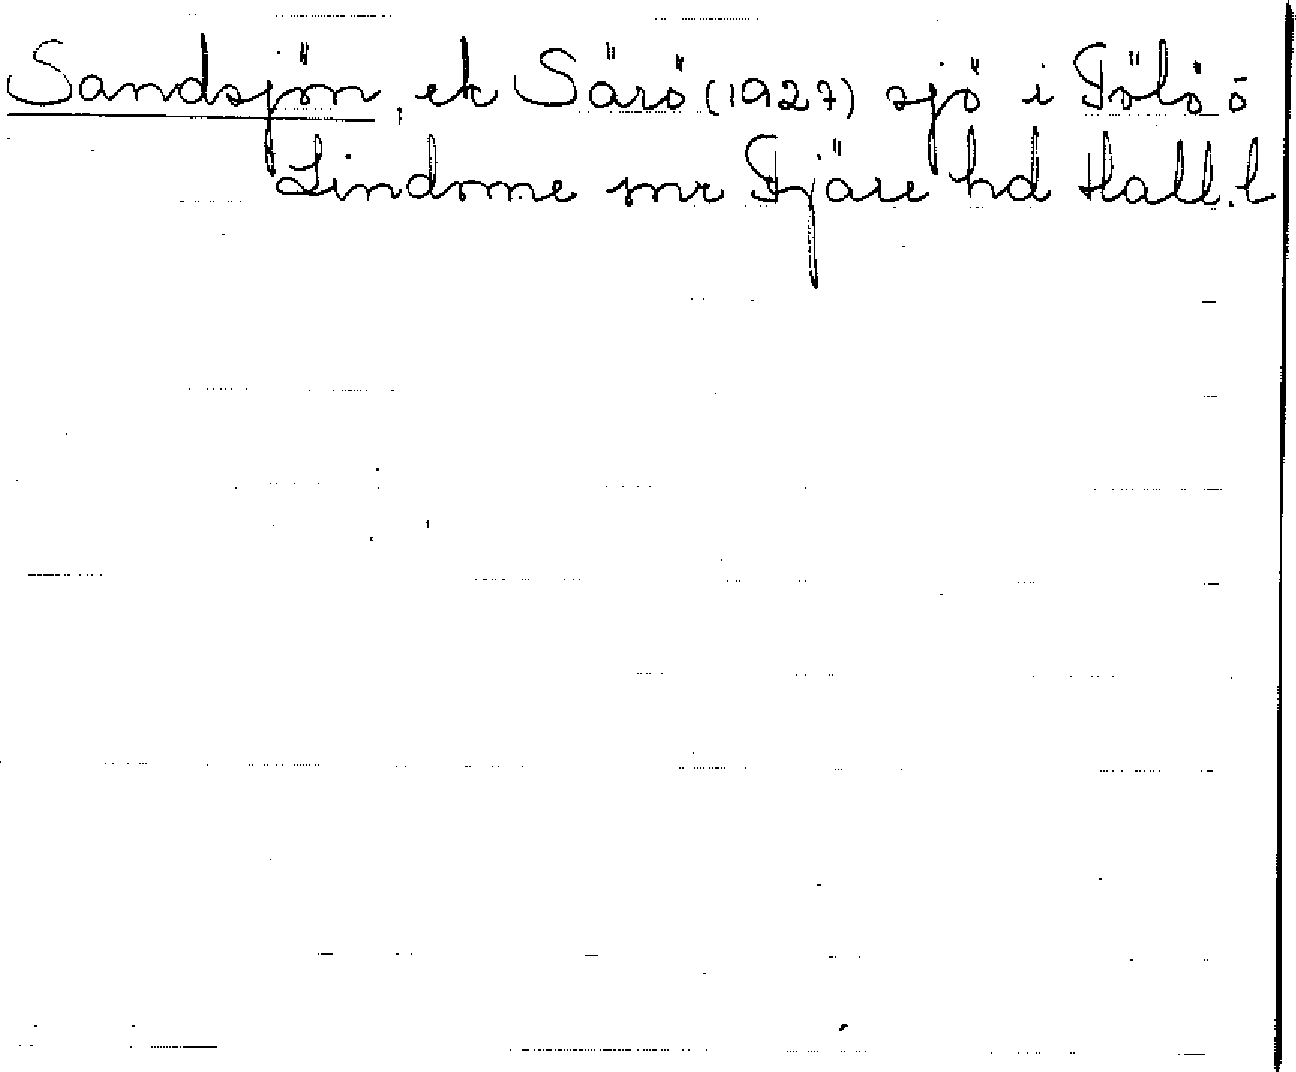 Sandsjön, ek Särö (1927) sjö i Tölö o
Lindome snr Fjäre hd Hall. l